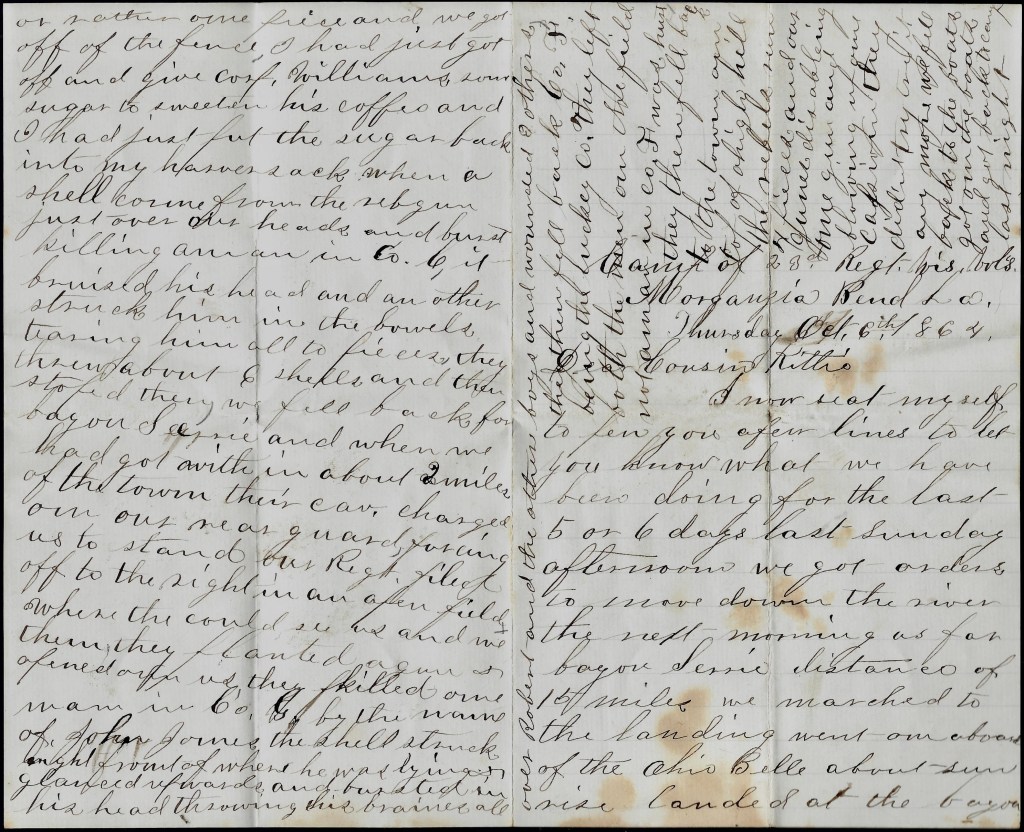 Camp of 23d Regt. Wis. vols.
Morganzia Bend La.
Thursday Oct. 6th 1864.
Cousin Kittie
I now seat myself
to pen you a few lines to let
you know what we have
been doing for the last
5 or 6 days last sunday
afternoon we got orders
to move down the river
the next morning as far
bayou Serrie distance of
15 miles we marched to
the landing went on aboard
of the Ohio Belle about sun
rise landed at the bayou
or rather one piece and we got
off of the fence, I had just got
off and give corp. Williams som
sugar to sweeten his coffee and
I had just put the sugar back
into my haversack when a
shell come from the reb gun
just over our heads and burst
killing a man in Co. C, it
bruised his head and an other
struck him in the bowels
tearing him all to pieces, they
threw about 6 shells and then
stoped then we fell back for
bayou Serrie and when we
had got with in about 2 miles
of the town their cav. charged
on our rear guard, forcing
us to stand our Regt. filed
off to the right in an open field
where the could see us and we
them, they planted a gun &
opened on us, they killed one
man in Co. G, by the name
of John Jones, the shell struck
right front of where he was lying &
glanced upwards, and bursted in
his head throwing his braines all
over Robert and the other boys and wounded 3 others
they then fell back 6 Co. F
being the lucky co. they left
both the men on the field
not a man in co. F was hurt
they then fell back
to the town on
top of a high hill
the rebels run
pieces and our
gunes disabling
one gun and
blowing up one
caisson they
didn't try on it
any more we fell
back to the boats
got on the boats
and got back to camp
last night